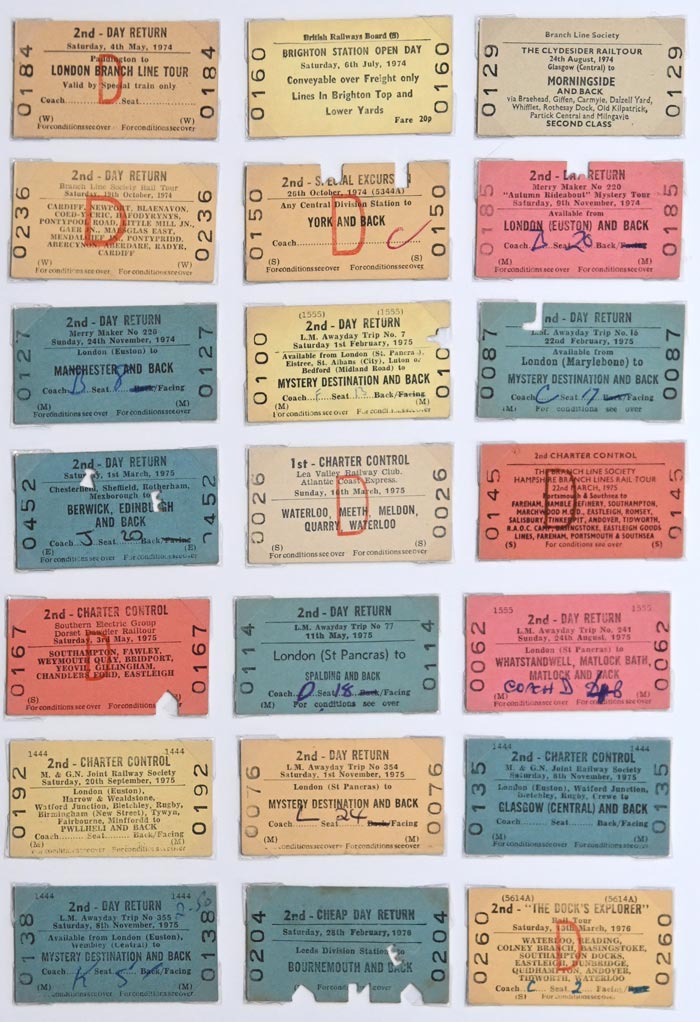 0184
2nd - DAY RETURN
Saturday, 4th May, 1974
Paddington to
LONDON BRANCH LINE TOUR
Valid by Special train only
Coach.......Seat.......
(W) (W)
For conditions see over For conditions see over
0184
D
0160
British Railways Board (S)
BRIGHTON STATION OPEN DAY
Saturday, 6th July, 1974
Conveyable over Freight only
Lines In Brighton Top and
Lower Yards
Fare 20p
0160
0129
Branch Line Society
THE CLYDESIDER RAILTOUR
24th August, 1974
Glasgow (Central) to
MORNINGSIDE
AND BACK
via Braehead, Giffen, Carmyle, Dalzell Yard,
Whifflet, Rothesay Dock, Old Kilpatrick,
Partick Central and Milngavie
SECOND CLASS
0129
0236
2nd - DAY RETURN
Branch Line Society Rail Tour
Saturday, 19th October, 1974
CARDIFF, NEWPORT, BLAENAVON,
PONTYPOOL ROAD, LITTLE MILL JN.,
CARDIFF
(W) (W)
For conditions see over For conditions see over
0236
D
0150
2nd - SPECIAL EXCURS
26th October, 1974 (5344A)
Any Central Station to
YORK AND BACK
Coach
(S) (S)
For conditions see over For conditions see over
0150
D
0185
2nd - DAY RETURN
Merry Maker No 220
"Autumn Rideabout" Mystery Tour
Saturday, 9th November, 1974
Available from
LONDON (EUSTON) AND BACK
Coach Seat 26 Back/
(M) (M)
For conditions see over For conditions see over
0185
0127
2nd - DAY RETURN
Merry Maker No 220
Sunday, 24th November, 1974
London (Euston) to
MANCHESTER AND BACK
Coach B Seat 8 /Facing
(M) (M)
For conditions see over For conditions see over
0127
0100
(1555)
2nd - DAY RETURN
L.M. Awayday Trip No. 7
Saturday 1st February, 1975
Available from London (St. Pancras),
Elstree, St. Albans (City), Luton or
Bedford (Midland Road) to
MYSTERY DESTINATION AND BACK
Coach F Seat Back/Facing
(M) (M)
For conditions see over
010
0087
nd - DAY RETURN
L.M. Awayday Trip No. 16
22nd February, 1975
Available from
London (Marylebone) to
MYSTERY DESTINATION AND BACK
Coach C Seat 17 /Facing
(M) (M)
For conditions see over
0087
0452
2nd - DAY RETURN
Saturday, 1st March, 1975
Chesterfield, Sheffield, Rotherham,
Mexborough to
BERWICK, EDINBURGH
AND BACK
Coach J Seat 20 Back/
(E) (E)
For conditions see over For conditions see over
0452
0026
1st - CHARTER CONTROL
Lea Valley Railway Club.
Atlantic Coast Express.
Sunday, 16th March, 1975
WATERLOO, MEETH, MELDON,
QUARRY, WATERLOO
(S) (S)
For conditions see over For conditions see over
0026
D
0145
2nd CHARTER CONTROL
THE BRANCH LINE SOCIETY
HAMPSHIRE BRANCH LINES RAIL TOUR
22nd MARCH, 1975
Portsmouth & Southsea to
FAREHAM, HAMBLE REFINERY, SOUTHAMPTON,
MARCHWOOD M.O.D., EASTLEIGH, ROMSEY,
SALISBURY, TINKERPIT, ANDOVER, TIDWORTH,
R.A.O.C. CAMP, BASINGSTOKE, EASTLEIGH GOODS
LINES, FAREHAM, PORTSMOUTH & SOUTHSEA
(S) For conditions see over (S)
0145
D
0167
2nd - CHARTER CONTROL
Southern Electric Group
Dorset Dawdler Railtour
Saturday, 3rd May, 1975
SOUTHAMPTON, FAWLEY,
WEYMOUTH QUAY, BRIDPORT,
YEOVIL, GILLINGHAM,
CHANDLERS FORD, EASTLEIGH
(S)
For conditions see over For conditions
0167
D
0114
2nd - DAY RETURN
L.M. Awayday Trip No 77
11th May, 1975
London (St Pancras) to
SPALDING AND BACK
Coach D Seat 18 /Facing
(M) (M)
For conditions see over
0114
0062
1555 1555
2nd - DAY RETURN
L.M. Awayday Trip No. 241
Sunday, 24th August, 1975
London (St Pancras) to
WHATSTANDWELL, MATLOCK BATH,
MATLOCK AND BACK
COACH D
(M) (M)
For conditions see over For conditions see over
0062
0192
1444 1444
2nd - CHARTER CONTROL
M. & G.N. Joint Railway Society
Saturday, 20th September, 1975
London (Euston),
Harrow & Wealdstone,
Watford Junction, Bletchley, Rugby,
Birmingham (New Street), Tywyn,
Fairbourne, Minffordd to
PWLLHELI AND BACK
Coach Seat Back/Facing
(M) (M)
For conditions see over For conditions see over
0192
0076
2nd - DAY RETURN
L.M. Awayday Trip No 354
Saturday, 1st November, 1975
London (St Pancras) to
MYSTERY DESTINATION AND BACK
Coach L Seat 24 /Facing
(M) (M)
For conditions see over For conditions see over
0076
0135
2nd - CHARTER CONTROL
M. & G.N. Joint Railway Society
Saturday, 8th November, 1975
London (Euston), Watford Junction,
Bletchley, Rugby, Crewe to
GLASGOW (CENTRAL) AND BACK
Coach Seat Back/Facing
(M) (M)
For conditions see over
0135
0138
1444 1444
2nd - DAY RETURN
L.M. Awayday Trip No 355
Saturday, 8th November, 1975
Available from London (Euston),
Wembley (Central) to
MYSTERY DESTINATION AND BACK
Coach K Seat 5 Back/Facing
(M) (M)
For conditions see over For conditions see over
0138
2-50
0204
2nd - CHEAP DAY RETURN
Saturday, 28th February, 1976
Leeds Division Stations
BOURNEMOUTH AND BACK
0204
0260
(5614A) (5614A)
2nd - "THE DOCK'S EXPLORER"
Rail Tour
Saturday, 13th March, 1976
WATERLOO, READING,
COLNEY BRANCH, BASINGSTOKE,
SOUTHAMPTON DOCKS,
EASTLEIGH, DUNBRIDGE,
QUIDHAMPTON, ANDOVER,
TIDWORTH, WATERLOO
Coach C Seat 2 Facing
(S)
For conditions see over
0260
D